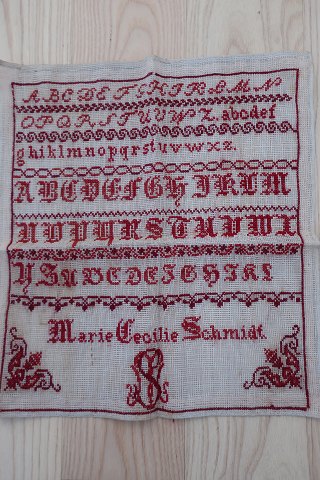 A B C D E F G H I K L M N
O P Q R S T U V W Z. a b c d e f
g h i k l m n o p q r s t u v w x z.
A B C D E F G H I K L M
N O P Q R S T U V W X
Y Z A B C D E F G H I K L
Marie Cecilie Schmidt.